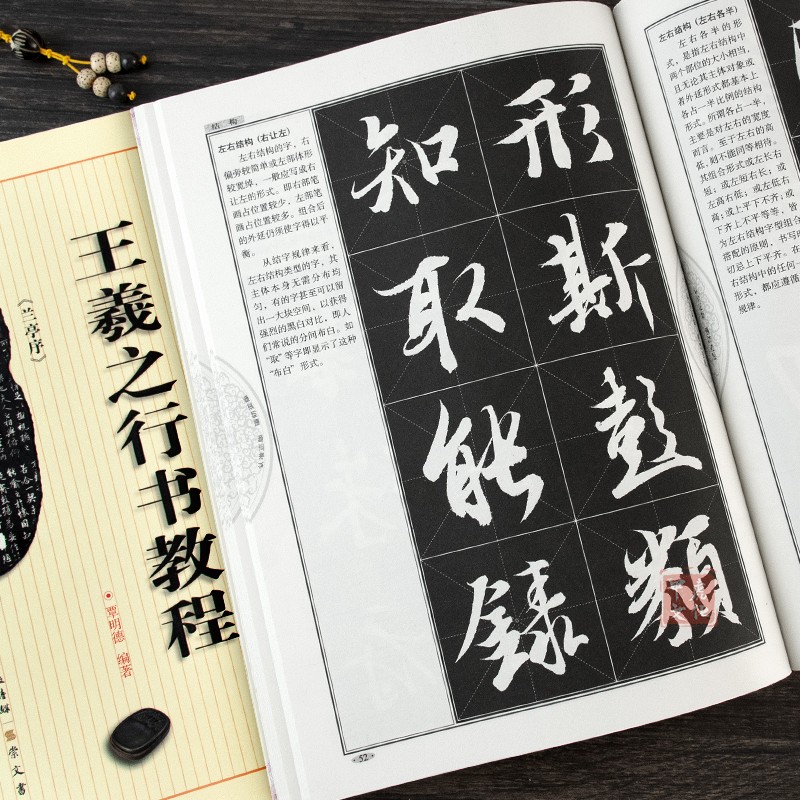 王羲之行书教程
《兰亭序》
覃明德 编著
崇文书
结构
左右结构（右让左）
左右结构的字，右
偏旁较简单或左部体形
较宽绰，一般应写成右
让左的形式。即右部笔
画占位置较少，左部笔
画占位置较多。组合后
的外延仍须使字得以平
衡。
从结字规律来看，
左右结构类型的字，其
主体本身无需分布均
匀，有的字甚至可以留
出一大块空间，以获得
强烈的黑白对比，即人
们常说的分间布白。如
“取”等字即显示了这种
“布白”形式。
形
斯
彭
类
知
取
能
录
52
左右结构（左右各半）
左右各半的形
式，是指左右结构中
两个部位的大小相当，
且无论其主体对象或
者外延形式都基本上
各占一半比例的结构
形式。所谓各占一半，
主要是对左右的宽度
而言。至于左右的高
低，则不能同等相待。
其组合形式或左长右
短，或左短右长；或
左高右低，或左低右
高；或上平下不齐；或
下齐上不平等等，皆
为左右结构字型组合
搭配的原则，书写时
切忌上下平齐。在
右结构中的任何一
形式，都应遵循
规律。